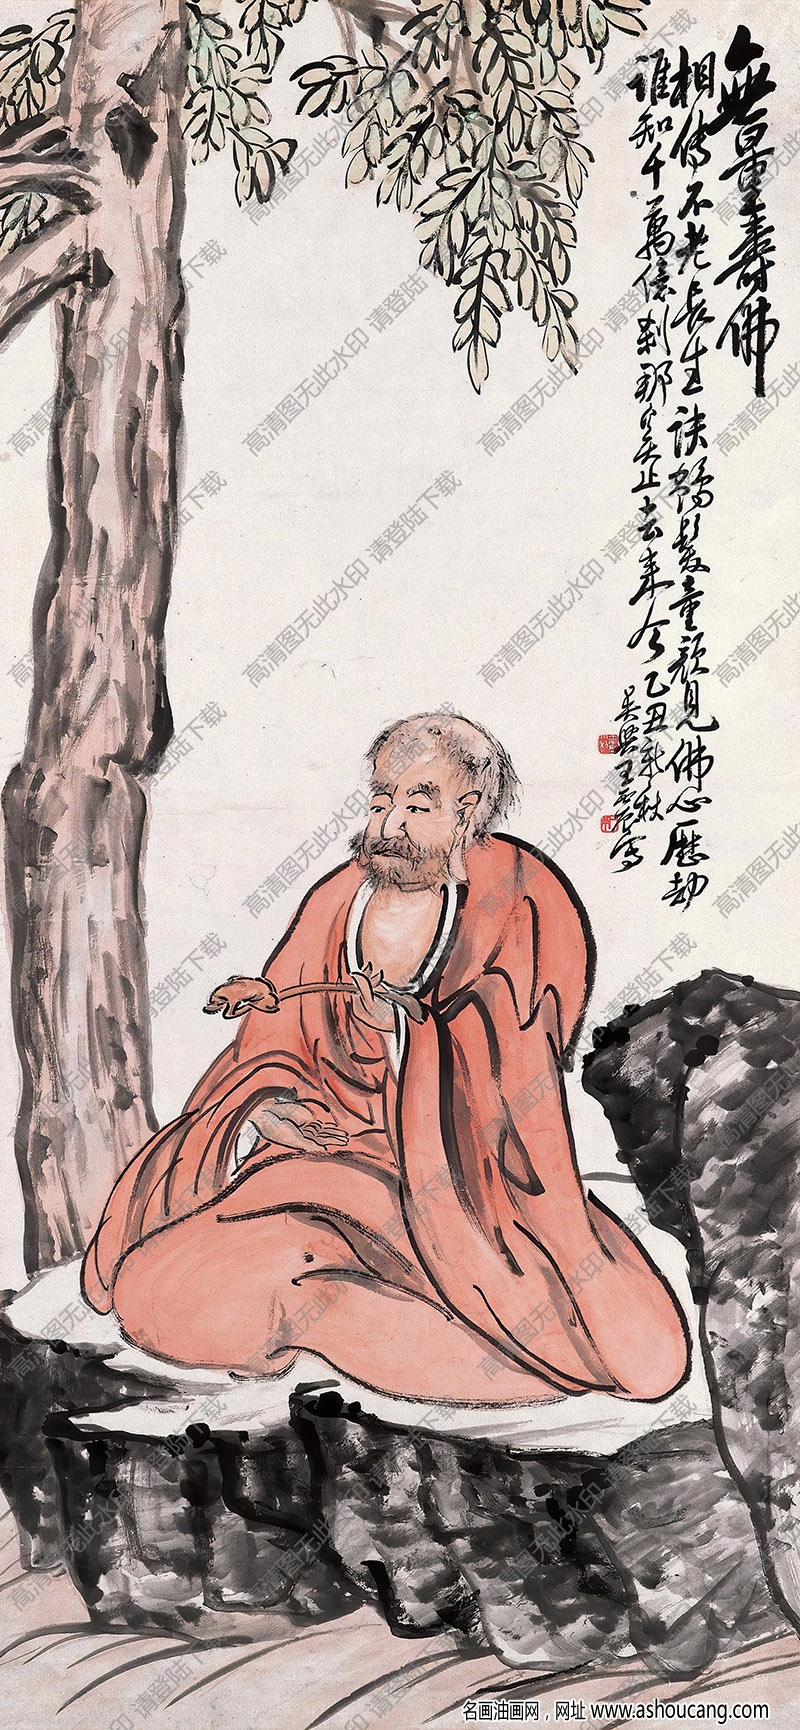 無量壽佛
相傳不老長生訣鶴髮童顏見佛心歷劫
誰知千萬億剎那莫止去來今乙丑新秋
吳興王震寫
高清图无此水印 请登陆下载
名画油画网，网址 www.ashoucang.com